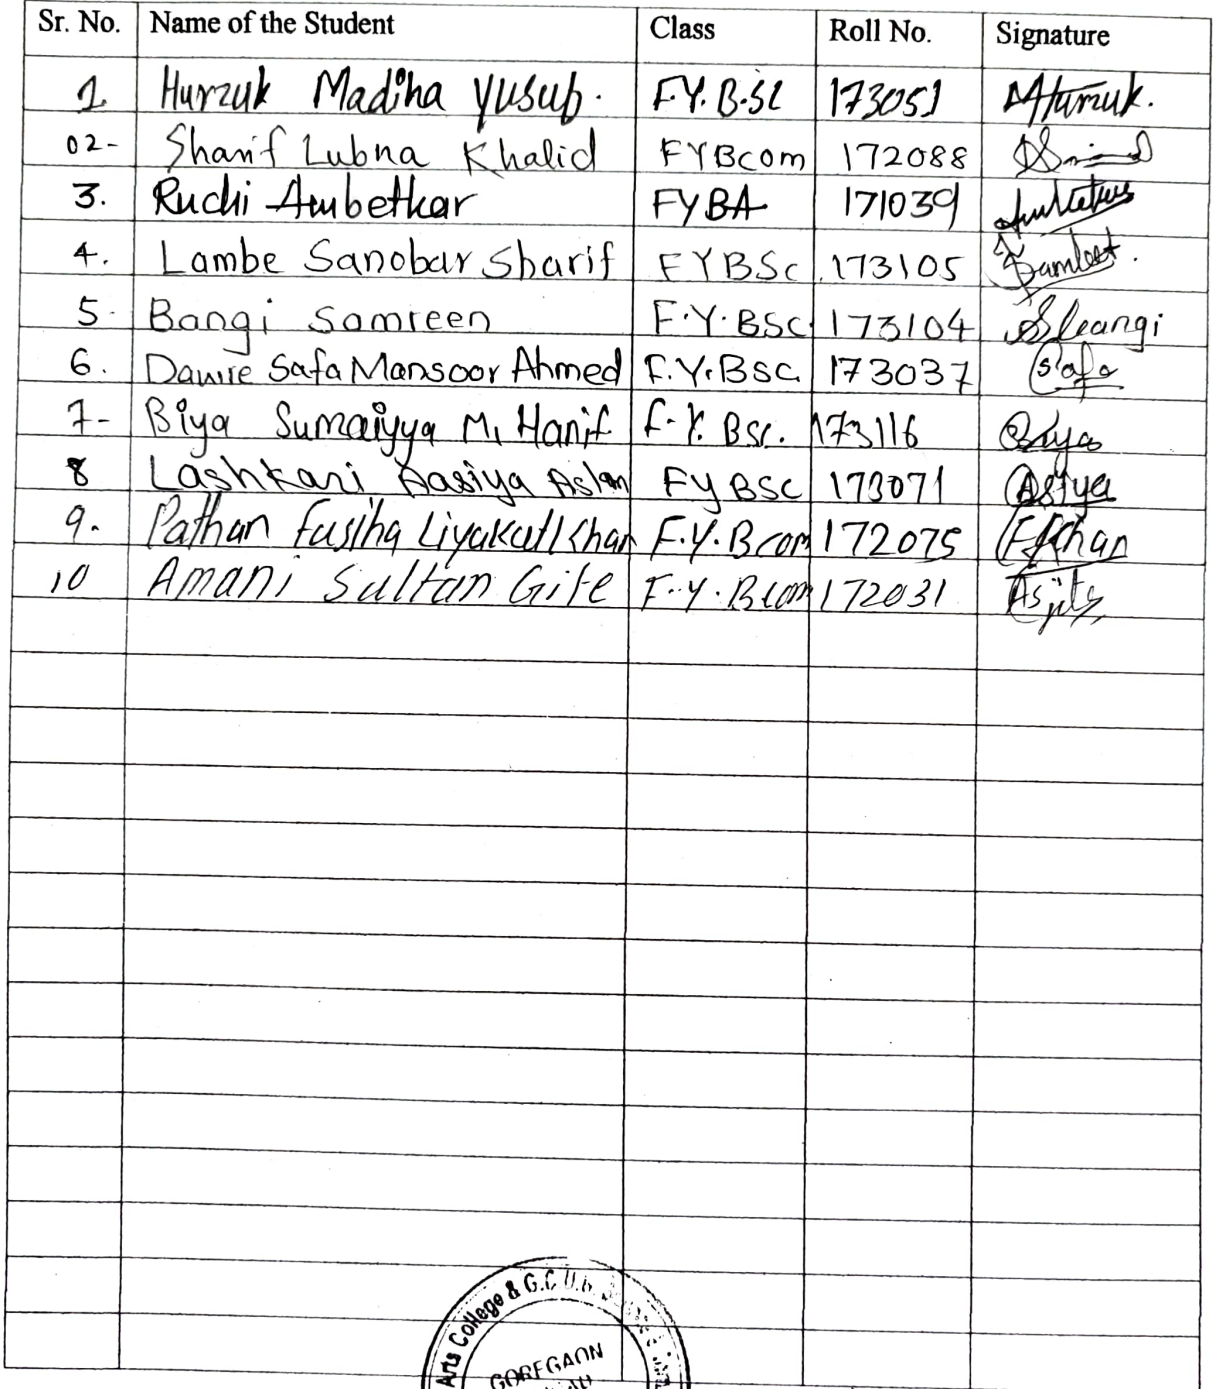 Sr. No. Name of the Student Class Roll No. Signature
1 Hurzuk Madiha Yusub. F.Y.B.Sc 173051 MHurzuk.
02- Sharif Lubna Khalid FYBcom 172088
3. Ruchi Ambetkar FYBA 171039
4. Lambe Sanobar Sharif FYBSc 173105
5. Bangi Samreen F.Y.BSC 173104 SBangi
6. Dawre Safa Mansoor Ahmed F.Y.BSC. 173037 Safa
7- Biya Sumaiyya M. Hanif F.Y. BSc. 173116 Biya
8 Lashkari Aasiya Aslam FYBSC 173071 Asiya
9. Pathan Fasiha Liyakatkhan F.Y.Bcom 172075 FKhan
10 Amani Sultan Gite F.Y.Bcom 172031
Arts College & G.C.
GOREGAON